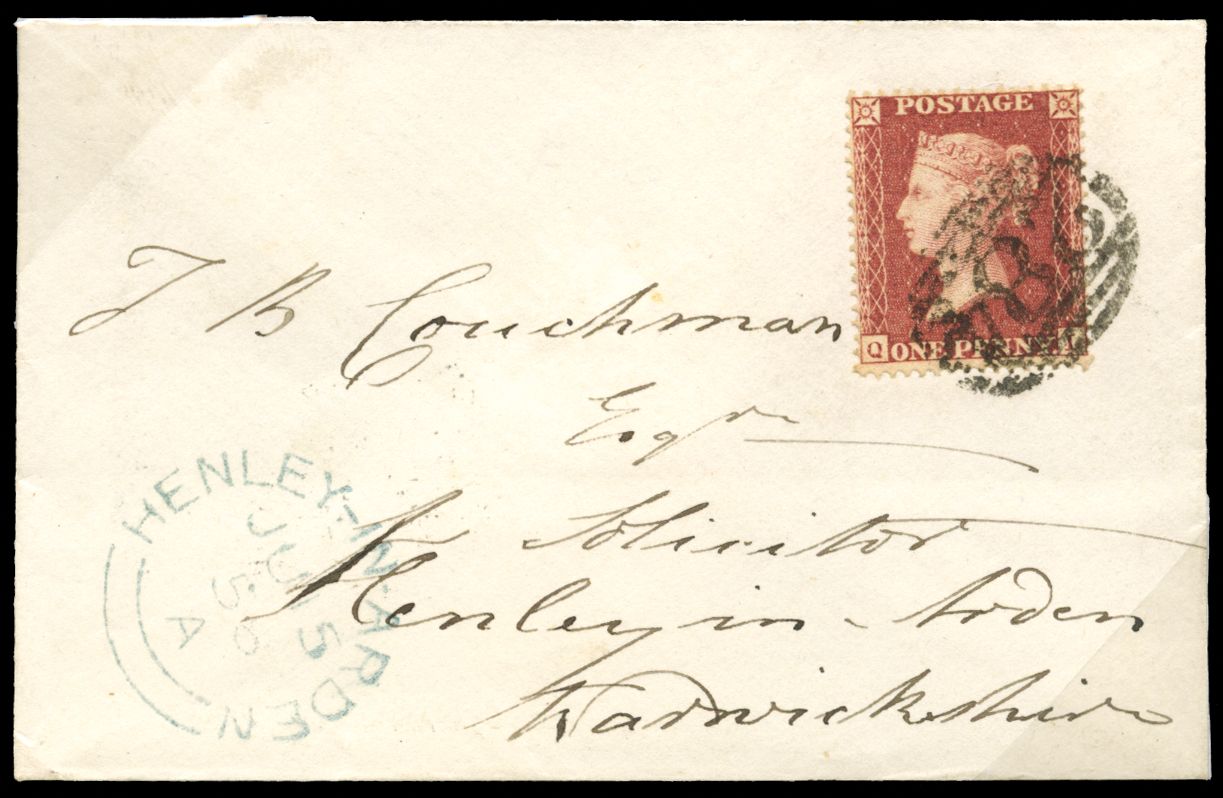 POSTAGE
Q ONE PENNY
T B Couchman
Esqre
Solicitor
Henley in Arden
Warwickshire
HENLEY-IN-ARDEN
A